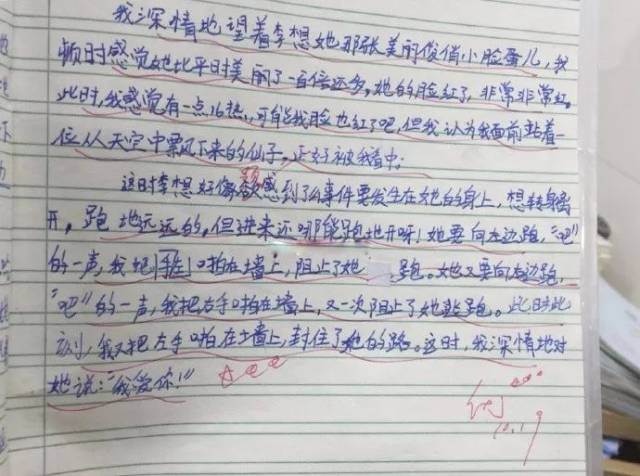 我深情地望着李想她那张美丽俊俏小脸蛋儿,我
顿时感觉她比平日美丽了一百倍还多。她的脸红了,非常非常红。
此时,我感觉有一点儿热,可能我脸也红了吧,但我认为我面前站着一
位从天空中飘下来的仙子,正好被我看中。
这时李想好像预感到了什么事件要发生在她的身上,想转身离
开,跑地远远的,但进来还哪能跑地开呀!她要向左边跑,“吧”
的一声,我把手啪在墙上,阻止了她跑。她又要向右边跑,
“吧”的一声,我把右手啪在墙上,又一次阻止了她跑。此时此
刻,我又把左手啪在墙上,封住了她的路。这时,我深情地对
她说:“我爱你!”
10.19